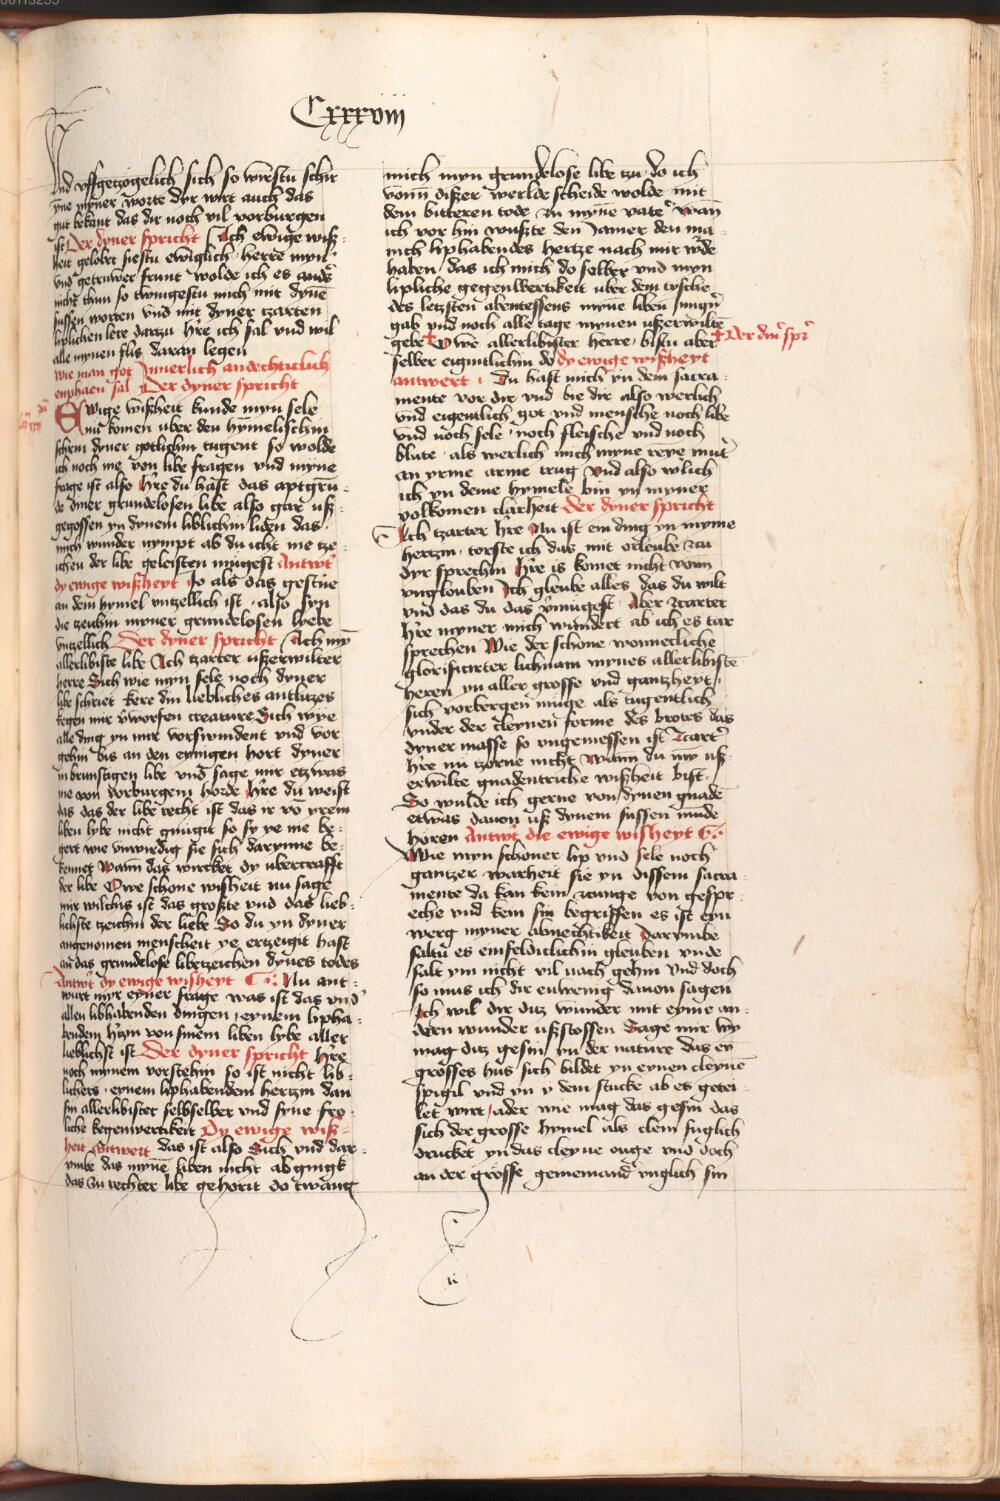 Cxxxviii
Vnd vffgetzogelich sich so wirstu schir
yne myner worte dyr wirt auch das
gut bekant das dir noch vil vorburgen
ist Der dyner spricht Ach ewige wiß-
heit gelobt siestu ewiglich herre myn
vnd getruwer frunt wolde ich es anders
nicht thun so twingestu mich mit dynē
sussen worten vnd mit dyner tzarten
liplichen lere dartzu h're ich sal vnd wil
alle mynen flis daran legen
wie man got Innerlich andechticlich
enphaen sal Der dyner spricht
Ewige wißheit kunde myn sele
nu komen uber den hymelischin
schrin dyner gotlichin tugent so wolde
ich noch me von libe fragen vnd myne
frage ist also h're du hast das aptgru-
de diner grundelosen libe also gar uß-
gegossen yn dynem liblichin liden das
mich wunder nympt ab du icht me tze-
ichen der libe geleisten mugest Antwt'
dy ewige wißheyt Jo als das gestirne
an dem hymel vntzellich ist also syn
die tzeichin myner grundelosen lyebe
vntzellich Der dyner spricht Ach myn
allerlibiste libe Ach tzarter ußerwilter
herre Sich wie myn sele noch dyner
libe schriet kere din liebliches antlitzes
kegen mir v'worfen creature Sich wye
alle ding yn mir vorswindent vnd vor
gehin bis an den eynigen hort dyner
inbrunstigen libe vnd sage mir etzwas
me von vorburgem horde h're du weist
das das der libe recht ist das ir vō yrem
liben lybe nicht gnugit so sy ye me be-
gert wie vnwirdig sie sich darynne be-
kennet Wann das wircket dy ubercrafft
der libe Owe schone wisheit nu sage
mir wilchis ist das großte vnd das lieb-
lichste tzeichin der liebe So du yn dyner
angenomen menscheit ye ertzeigit hast
an das grundelose libetzeichen dynes todes
Antw't dy ewige wisheyt C Nu ant-
wurt myr eyner frage was ist das vnd'
allen libhabenden dingen eynem lipha-
bendem h'tzin von sinem liben lybe aller
lieblichst ist Der dyner spricht h're
noch mynem vorstehin so ist nicht lib-
lichers eynem liphabendem hertzin dan
sin allerlibister selbselber vnd syne fro-
liche kegenwertikeit Dy ewige wiß-
heit Antwert das ist also Sich vnd dar-
vmbe das mynē liben nicht ab gingk
das zu rechter libe gehorit do twang
mich myn grundelose libe tzu do ich
vonn dißer werlde scheide wolde mit
dem bitteren tode zu mynē vater wan
ich vor hin wußte den Jamer den ma-
nich liphabendes hertze nach mir w'de
haben das ich mich do selber vnd myn
lipliche gegenwertikeit uber dem tysche
des letzsten abentessens mynē liben Jungern
gab vnd noch alle tage mynen ußerwiltē
gebe Owe allerlibister herre bistu aber
Der din' spr'
selber eigintlichin do dy ewige wißheyt
antwert Du hast mich yn dem sacra-
mente vor dir vnd bie dir also werlich
vnd eigentlich got vnd mensche noch libe
vnd noch sele noch fleische vnd noch
blute als werlich mich myne reye mut'
an yrme arme trug Vnd also w'lich
ich yn deme hymele bin yn myner
volkomen clarheit Der dyner spricht
Ach tzarter h're Nu ist ein ding yn myme
hertzin torste ich das mit orleube zcu
dyr sprechin h're is komet nicht vonn
vnglouben Ich gleube alles das du wilt
vnd das du das v'mugest Aber zcarter
h're myner mich wundert ab ich es tar
sprechen Wie der schone wonnecliche
glorificirter lichnam mynes allerlibiste
heren yn aller grosse vnd gantzheyt
sich vorbergen muge als tugentlich
vnder der cleynen forme des brotes das
dyner masse so vngemessen ist Zcart'
h're nu tzorne nicht Wann du mir uß-
erwilte gnadentriche wißheit bist
So wulde ich gerne von dynen gnade
etwas davon uß dynem sussen munde
horen Antw't die ewige wisheyt C
Wie myn schoner lip vnd sele noch
gantzer warheit sie yn dissem sacra-
mente da kan kein zcunge von gespr-
eche vnd kein sin begriffen es ist eyn
werg myner almechtikeit Darvmbe
saltu es einfeldiclichin gleuben vnde
salt ym nicht vil nach gehin Vnd doch
so mus ich dir einwenig davon sagen
Ich wil dir ditz wunder mit eyme an-
dern wunder ußstossen Sage mir wy
mag ditz gesin yn der nature das eyn
grosses hus sich bildet yn eynen cleynē
spigil vnd yn y dem stucke ab es getei-
let wirt ader wie mag das gesin das
sich der grosse hymel als clein fuglich
drucket yn das cleyne ouge vnd doch
an der grosse gemeinander vnglich sin